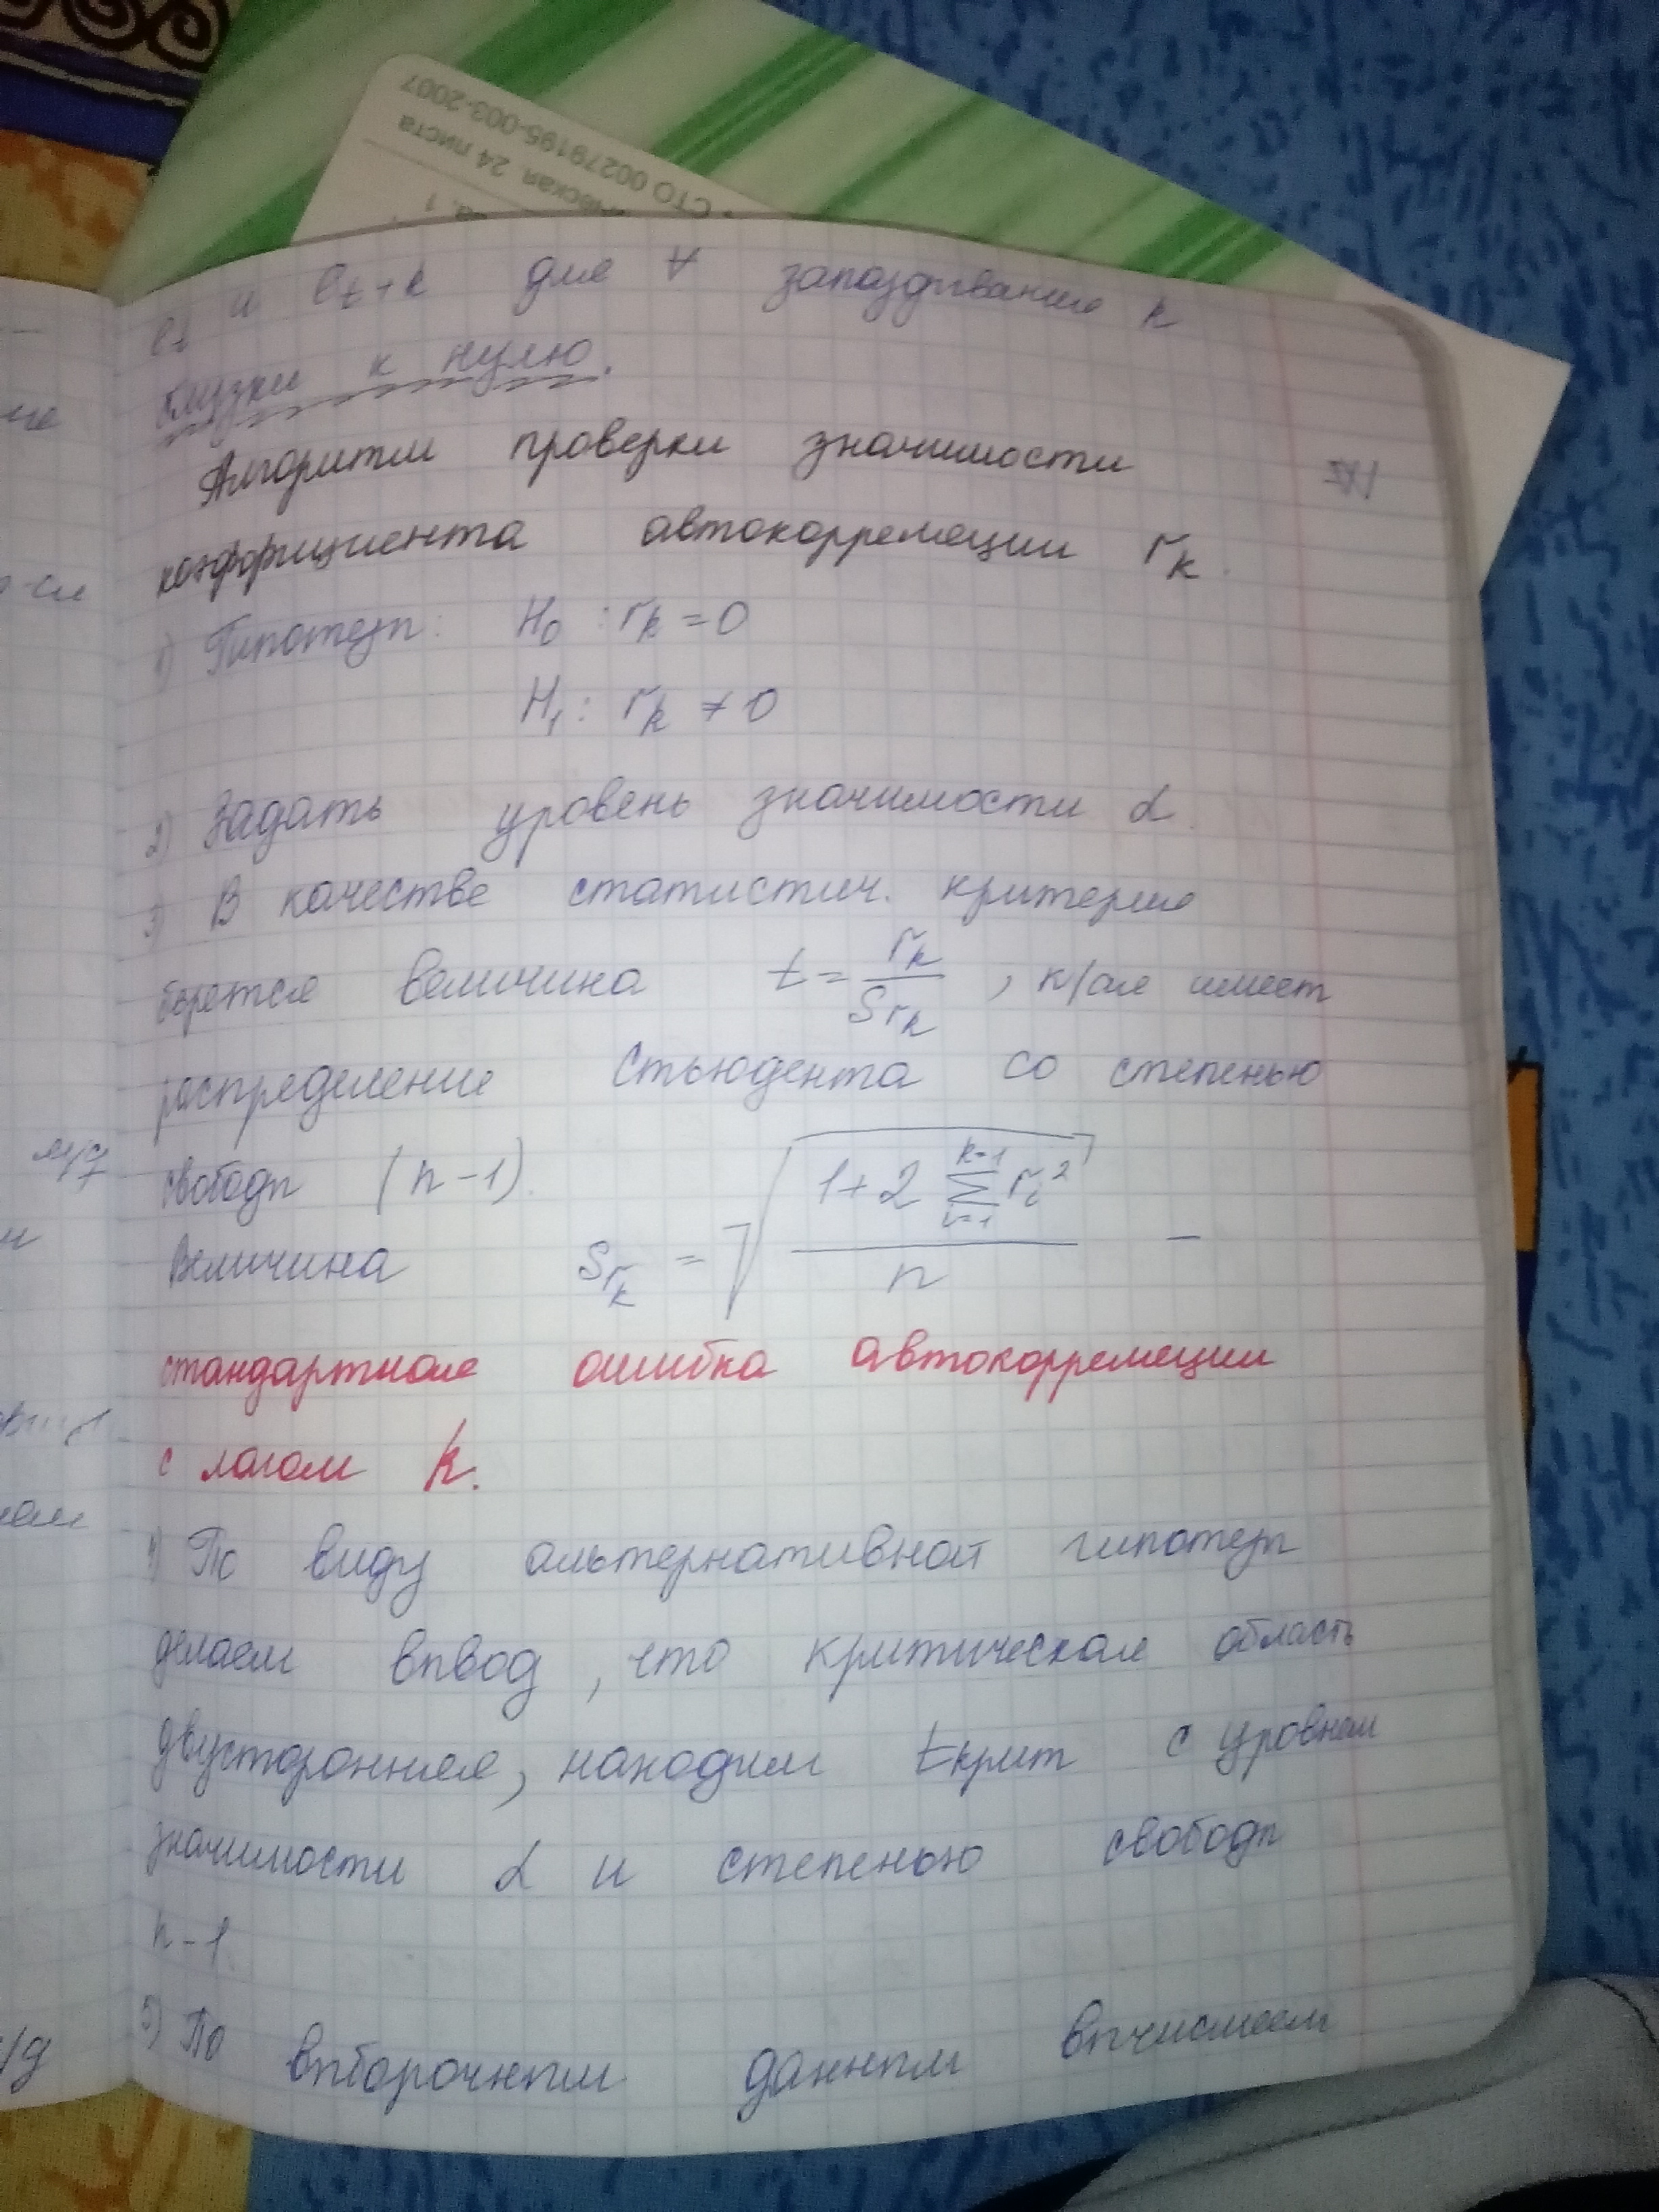 СТО 00279195-003-2007
24 листа
et и et+k для ∀ запаздывания k
близки к нулю.
Алгоритм проверки значимости
коэффициента автокорреляции rk.
1) Гипотезы: H0 : rk = 0
H1 : rk ≠ 0
2) Задать уровень значимости α.
3) В качестве статистич. критерия
берется величина t = rk / Srk , к/ая имеет
распределение Стьюдента со степенью
свободы (n-1).
Величина Srk = √((1+2 Σ(i=1, k-1) ri²) / n) –
стандартная ошибка автокорреляции
с лагом k.
4) По виду альтернативной гипотезы
делаем вывод, что критическая область
двусторонняя, находим tкрит с уровнем
значимости α и степенью свободы
n-1.
5) По выборочным данным вычисляем